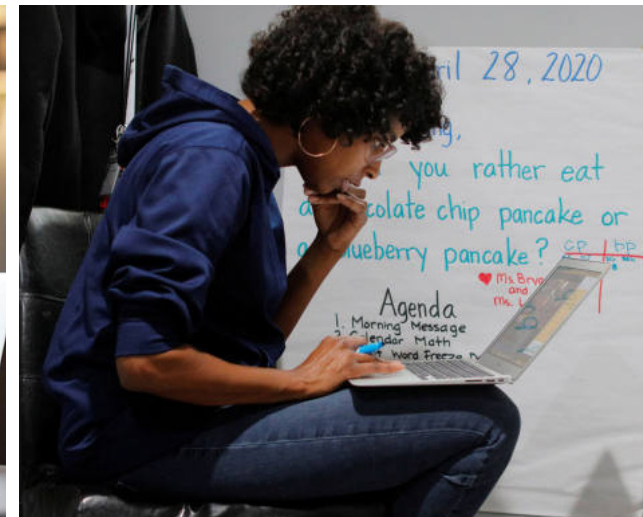 ril 28, 2020
ng,
you rather eat
a colate chip pancake or
a ueberry pancake?
CP bp
♥ Ms. Bry
and
Ms. L
Agenda
1. Morning Message
2. Calendar Math
Word Freeze